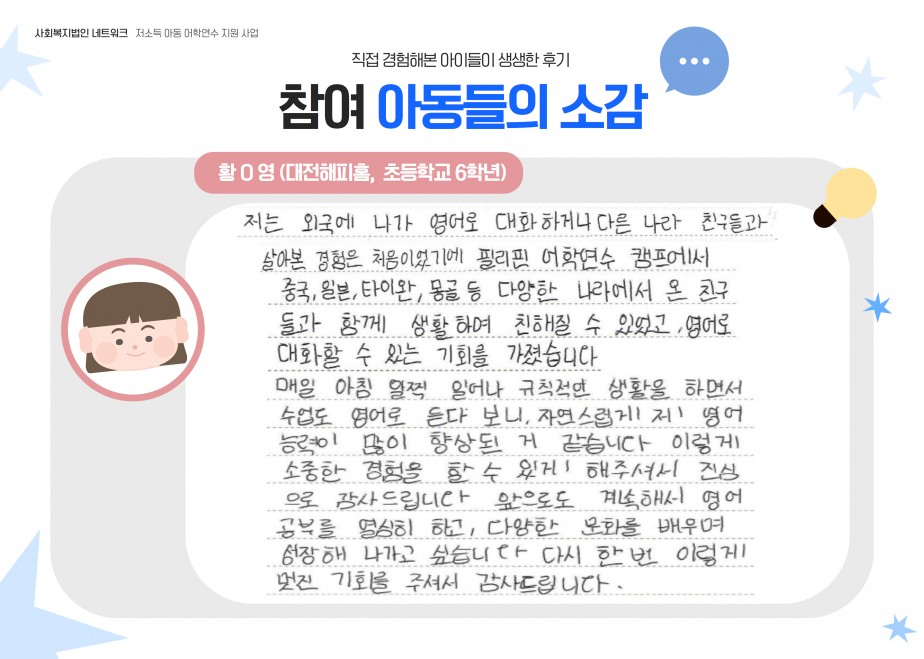 사회복지법인 네트워크 저소득 아동 어학연수 지원 사업
직접 경험해본 아이들이 생생한 후기
참여 아동들의 소감
황 O 영 (대전해피홈, 초등학교 6학년)
저는 외국에 나가 영어로 대화하거나 다른 나라 친구들과
살아본 경험은 처음이었기에 필리핀 어학연수 캠프에서
중국, 일본, 타이완, 몽골 등 다양한 나라에서 온 친구
들과 함께 생활하며 친해질 수 있었고, 영어로
대화할 수 있는 기회를 가졌습니다
매일 아침 일찍 일어나 규칙적인 생활을 하면서
수업도 영어로 듣다 보니, 자연스럽게 제 영어
능력이 많이 향상된 거 같습니다 이렇게
소중한 경험을 할 수 있게 해주셔서 진심
으로 감사드립니다 앞으로도 계속해서 영어
공부를 열심히 하고, 다양한 문화를 배우며
성장해 나가고 싶습니다 다시 한 번 이렇게
멋진 기회를 주셔서 감사드립니다.